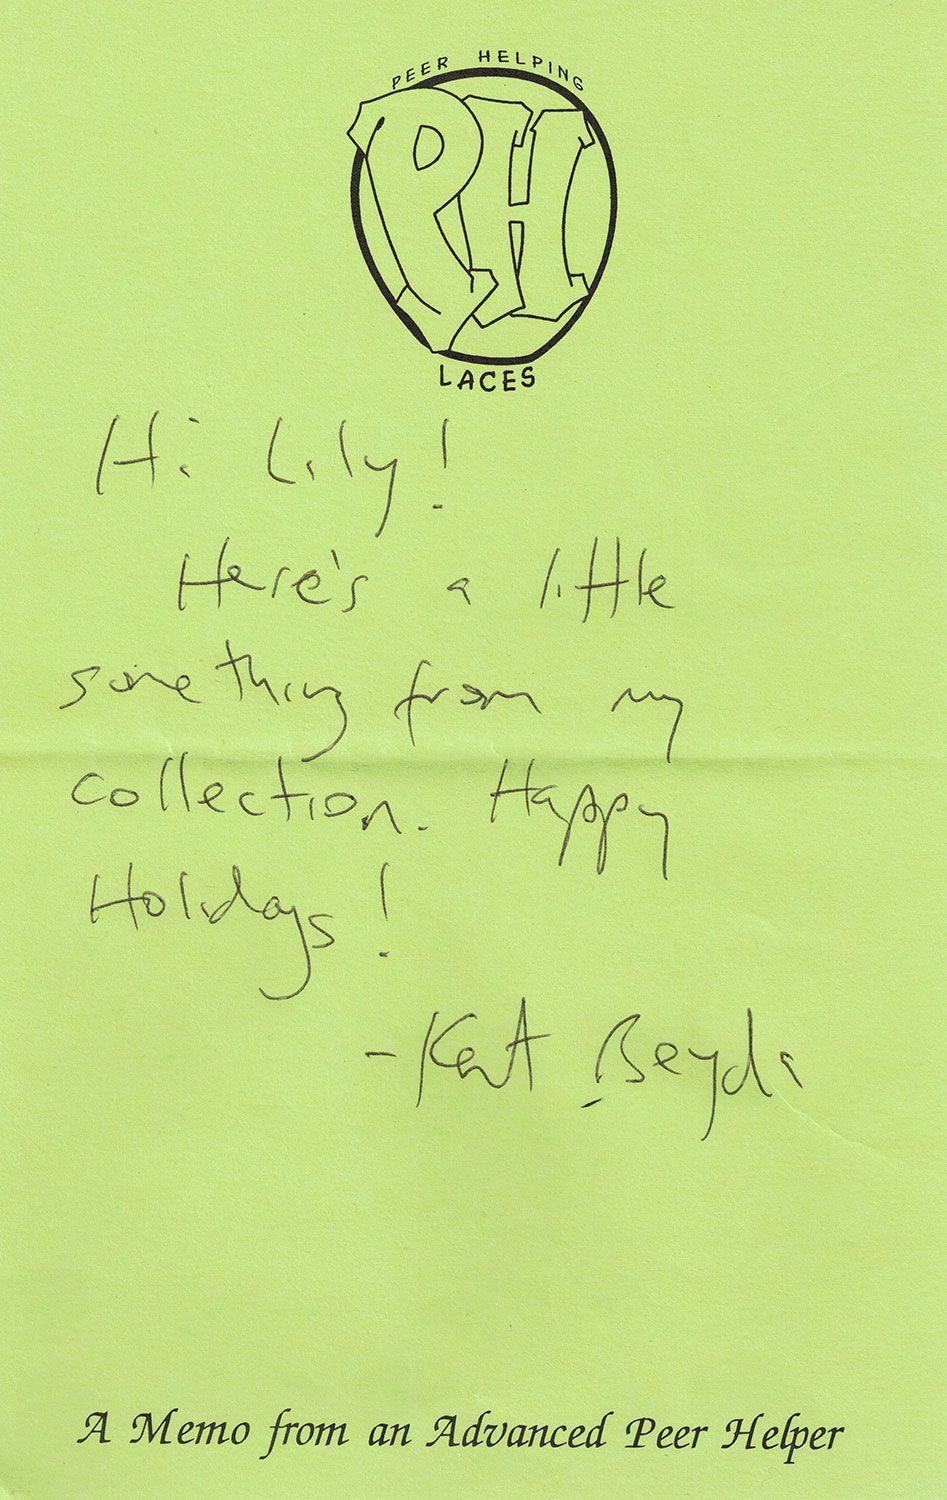 PEER HELPING
PH
LACES
Hi Lily!
Here's a little
something from my
collection. Happy
Holidays!
- Kent Beyda
A Memo from an Advanced Peer Helper